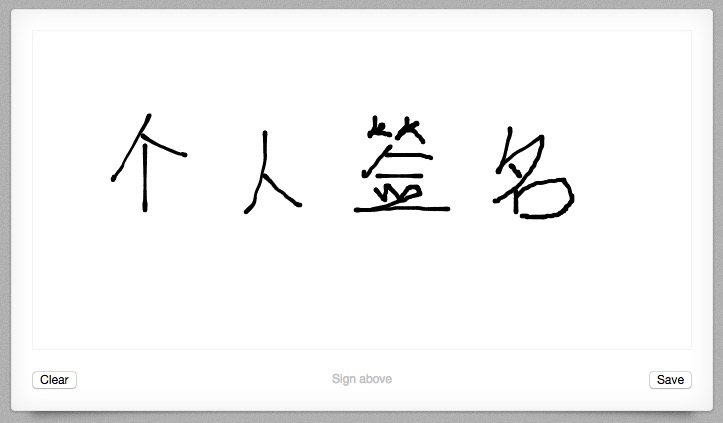 个人签名
Clear Sign above Save